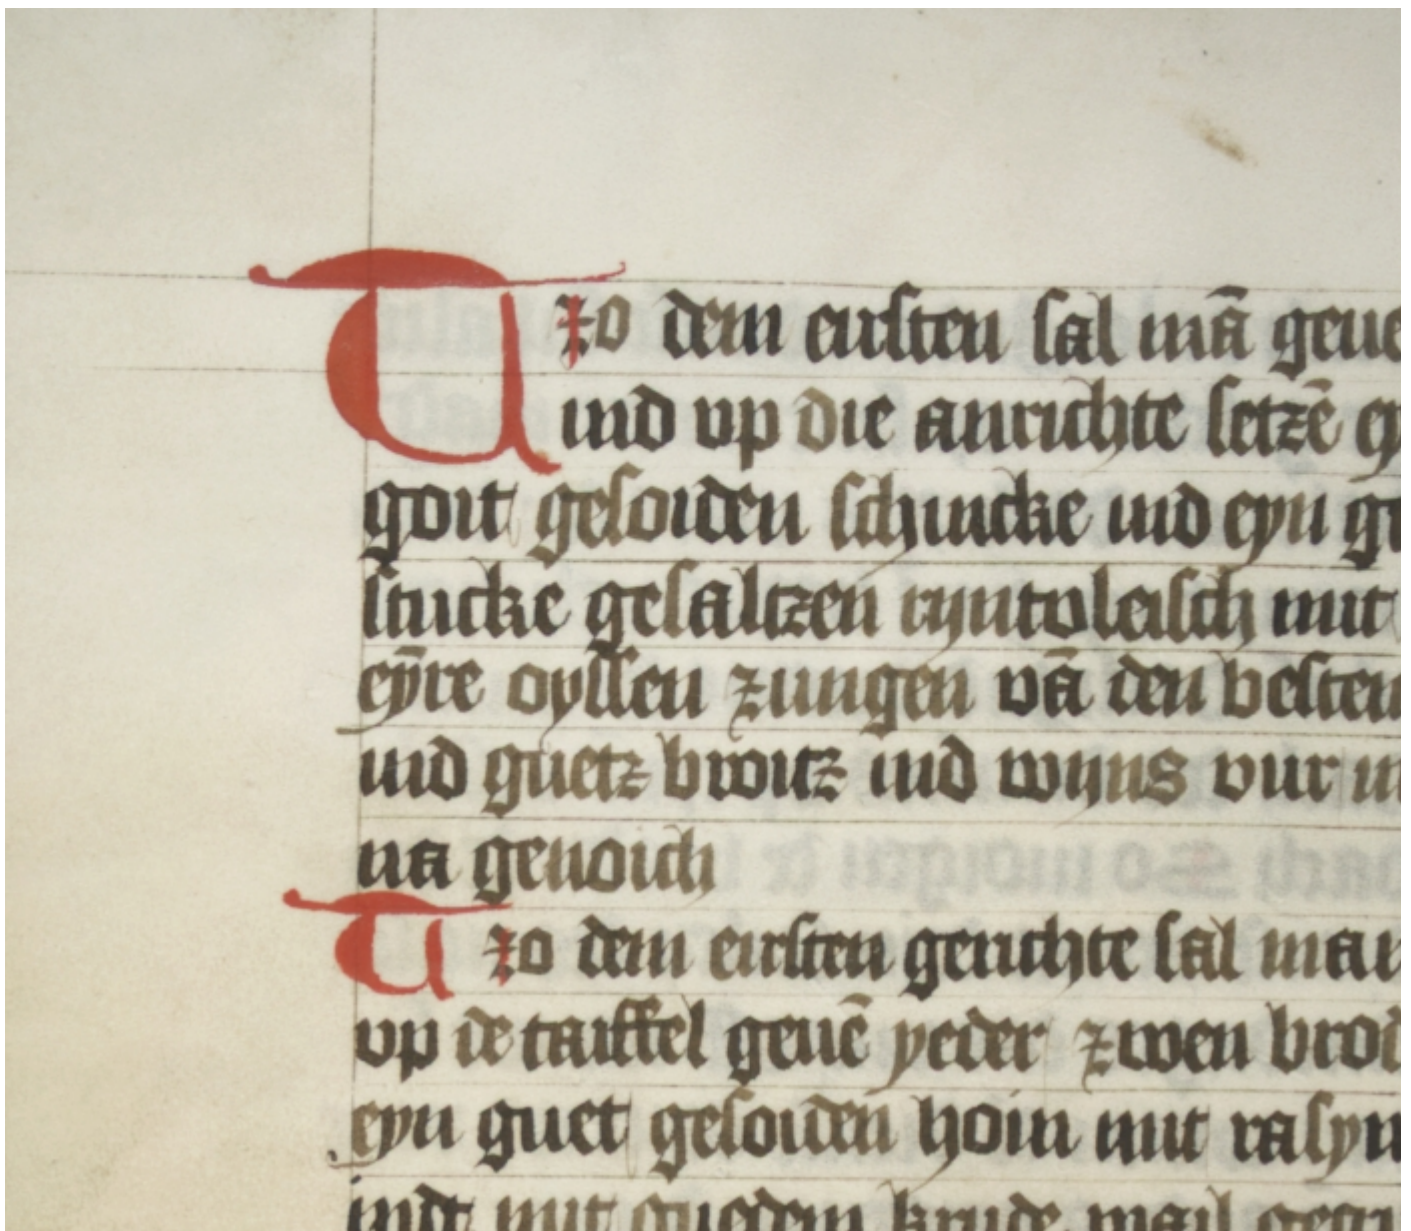 Tzo dem eirsten sal mā geue
ind up die anrichte setzē ey
goit gesoiden schincke ind eyn
stucke gesaltzen ryntvleisch mit
eȳre oyssen zungen vā den besten
ind guetz broitz ind wyns vur
na genoich
Tzo dem eirsten gerichte sal man
up de taiffel geuē yeder zwen
eyn guet gesoiden hoin mit rasyn
indt mit guedem krude